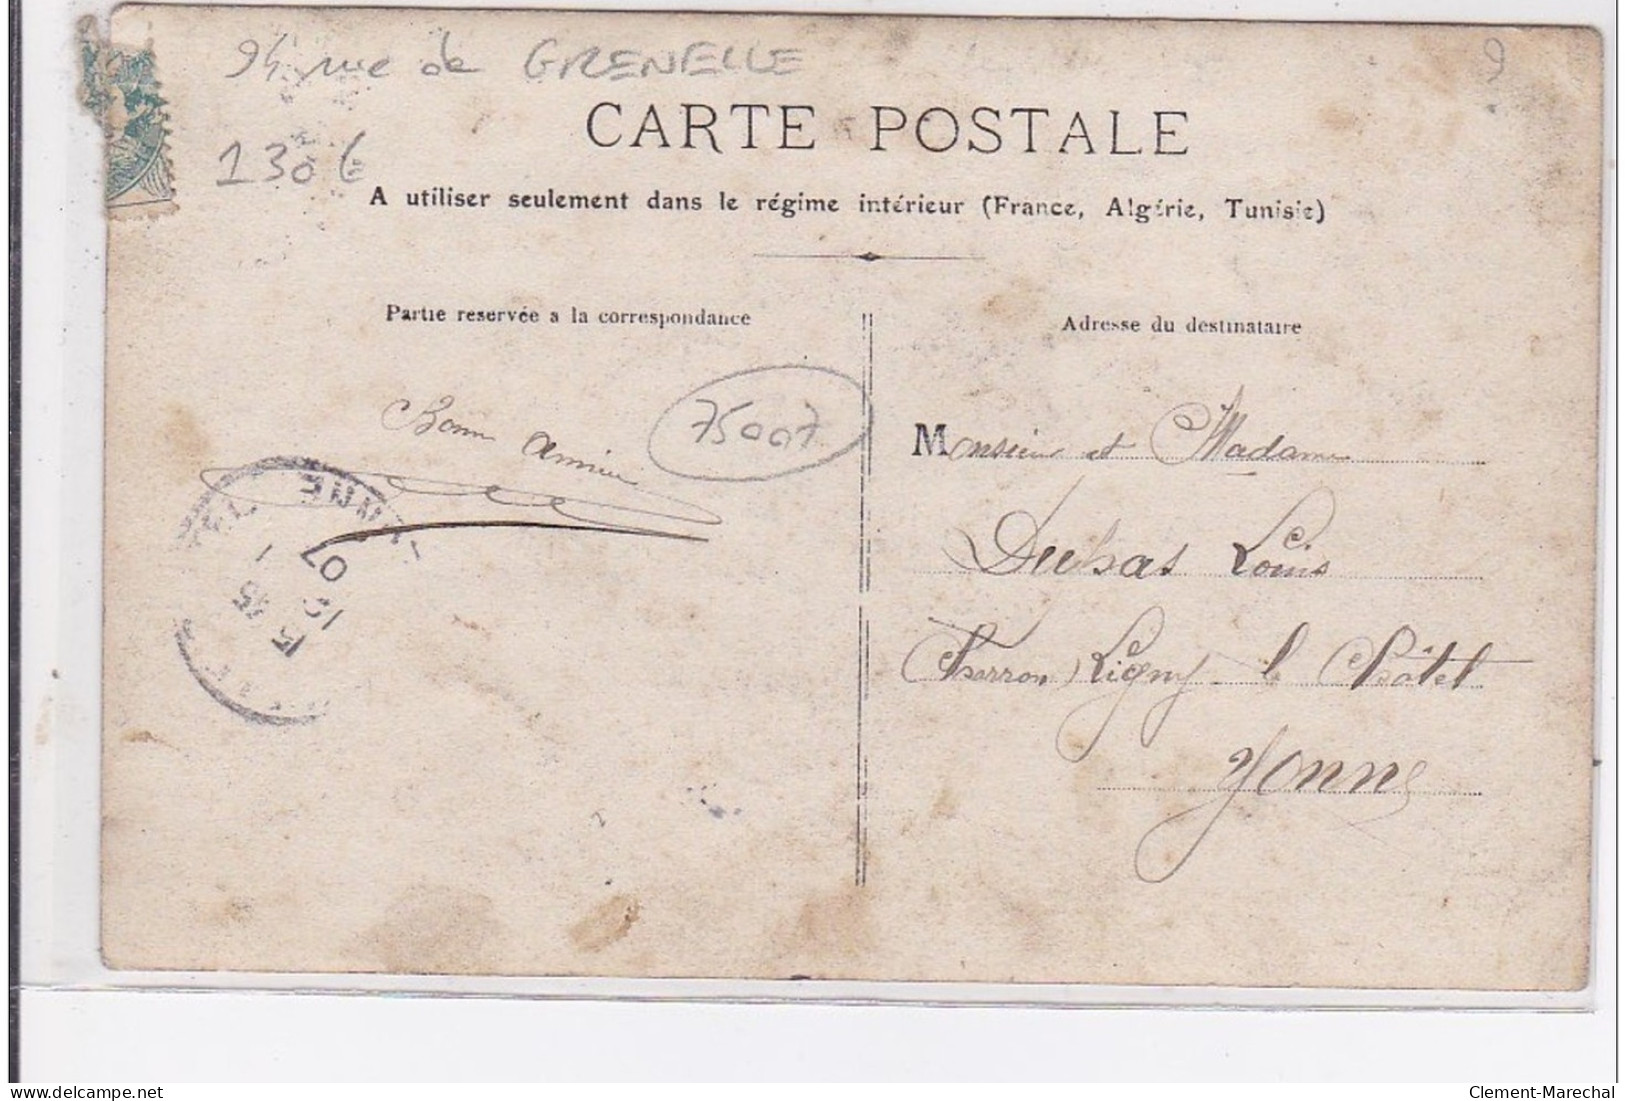 94 rue de GRENELLE
9
130 €
CARTE POSTALE
A utiliser seulement dans le régime intérieur (France, Algérie, Tunisie)
Partie reservée a la correspondance
Adresse du destinataire
Bonne
Année
75007
Monsieur et Madame
Dubas Louis
Ligny le Châtel
Yonne
YONNE
15
1
07
www.delcampe.net
Clement-Marechal